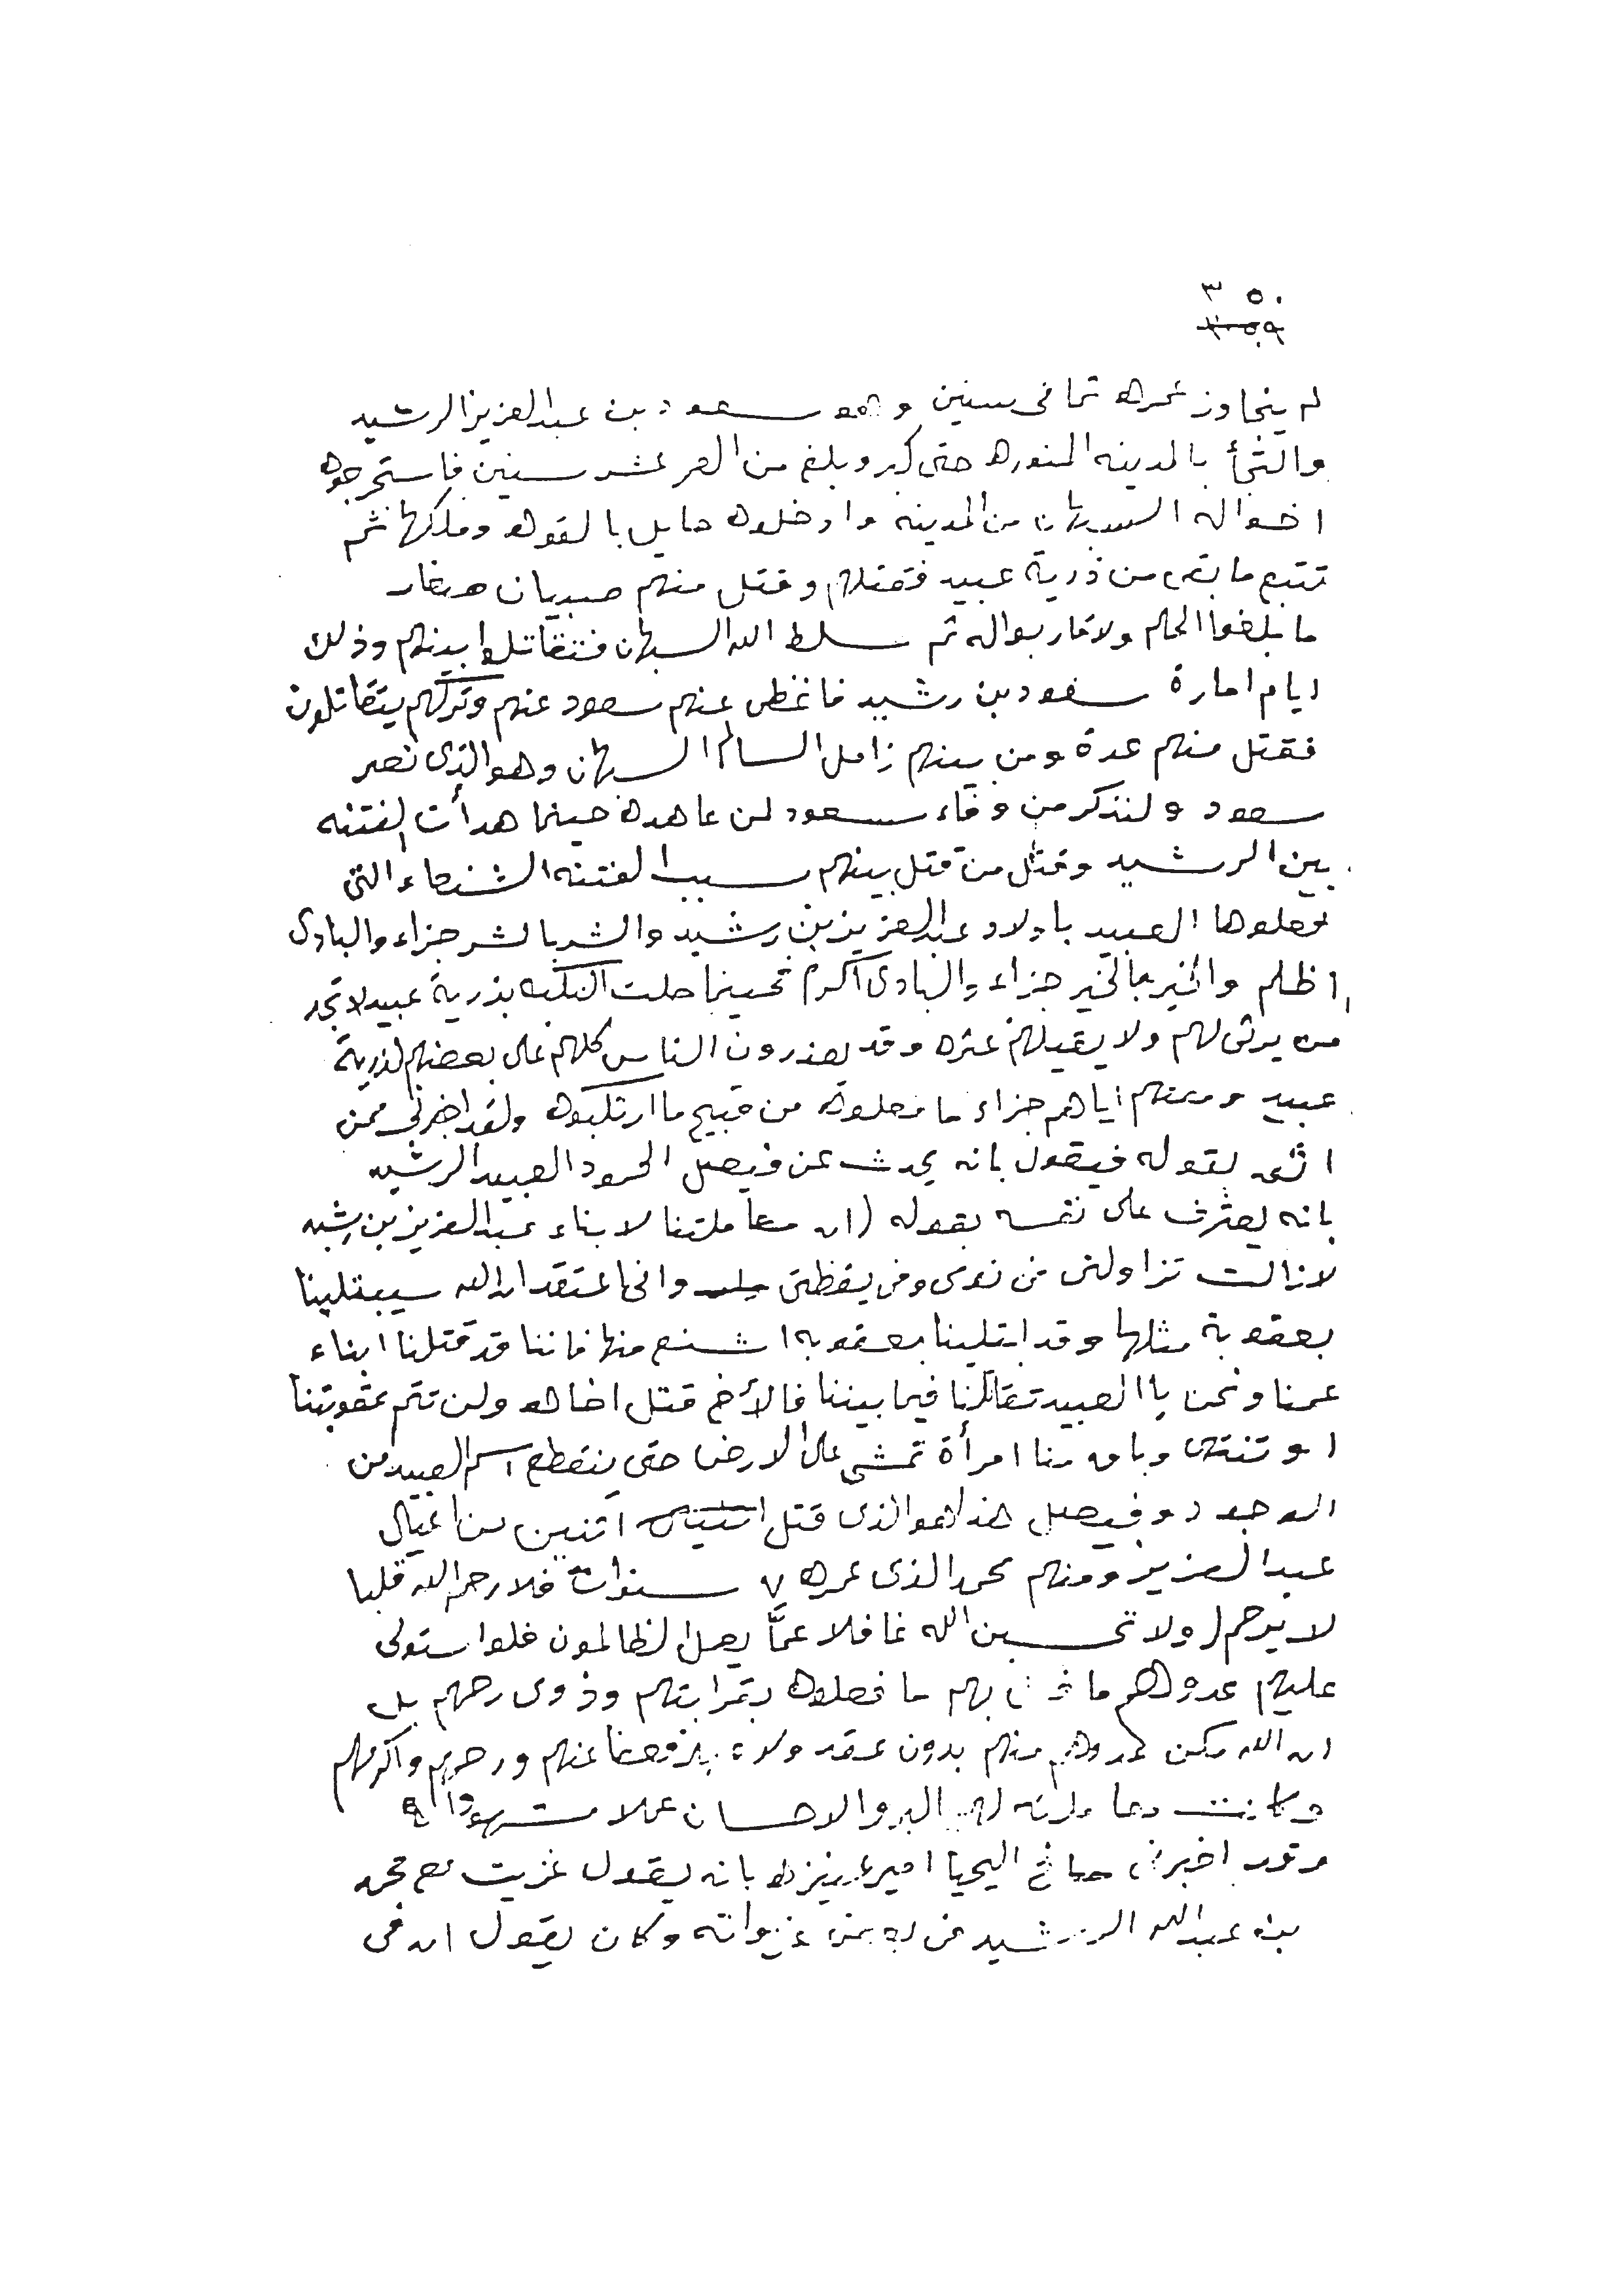 ٣٥٠
٣٥٩
لم يتجاوز عمره ثماني سنين وهو سعود بن عبدالعزيز الرشيد
والتجأ بالمدينه المنوره حتى كبر وبلغ من العمر عشر سنين فاستخرجوه
اخواله السبهان من المدينه وادخلوه حايل بالقوه وملكها ثم
تتبع ما بقى من ذرية عبيد فقتلهم وقتل منهم صبيان صغار
ما بلغوا الحلم ولا قاربوا له ثم سلط الله السبهان فتقاتلوا بينهم وذلك
ايام امارة سعود بن رشيد فاغضى عنهم سعود عنهم وتركهم يتقاتلون
فقتل منهم عدة ومن بينهم زامل السالم السبهان وهو الذى نصر
سعود ولنذكر من وفاء سعود لمن عاهده حينما هدأت الفتنه
بين الرشيد وقتل من قتل بينهم سبب الفتنه الشنعاء التى
فعلوها العبيد باولاد عبدالعزيز بن رشيد والشر بالشر جزاء والبادى
اظلم والخير بالخير جزاء والبادى اكرم فحينما حلت النكبه بذرية عبيد لا تجد
من يرثى لهم ولا يقيلهم عثره وقد يعذرون الناس كلهم على بعضهم لذرية
عبيد ومقتهم اياهم جزاء ما فعلوه من قبيح ما ارتكبوه ولقد اخبرنى ممن
اثق بقوله فيقول بانه يحدث عن فيصل الحمود العبيد الرشيد
بانه يعترف على نفسه بقوله (ان معاملتنا لابناء عبدالعزيز بن رشيد
لازالت تزاولنى فى نومى وفى يقظتى وانى اعتقد ان الله سيبتلينا
بعقوبة مثلها وقد ابتلينا بعقوبه اشنع منها فاننا قد قتلنا ابناء
عمنا ونحن يا العبيد تقاتلنا فيما بيننا فالأخ قتل اخاه ولن تتم عقوبتنا
او تنتهى وباق منا امرأة تمشى على الارض حتى ينقطع اسم العبيد من
الوجود وفيصل هذا هو الذى قتل اثنين من اعيال
عبدالعزيز ومنهم محمد الذى عمره ٧ سنوات فلا رحم الله قلبا
لا يرحم (ولا تحسبن الله غافلا عمَّا يعمل الظالمون فلو استولى
عليهم عدوهم ما فعل بهم ما فعلوه بقرابتهم وذوى رحمهم بل
ان الله مكن عدوهم منهم بدون عقد ولاء فعفا عنهم ورحمهم واكرمهم
وكانت معاملته لهم البر والاحسان عملا
وقد اخبرنى صالح اليحيا امير عنيزه بانه يقول غزيت مع محمد
بن عبدالله الرشيد فى بعض غزواته وكان يقول ان فى